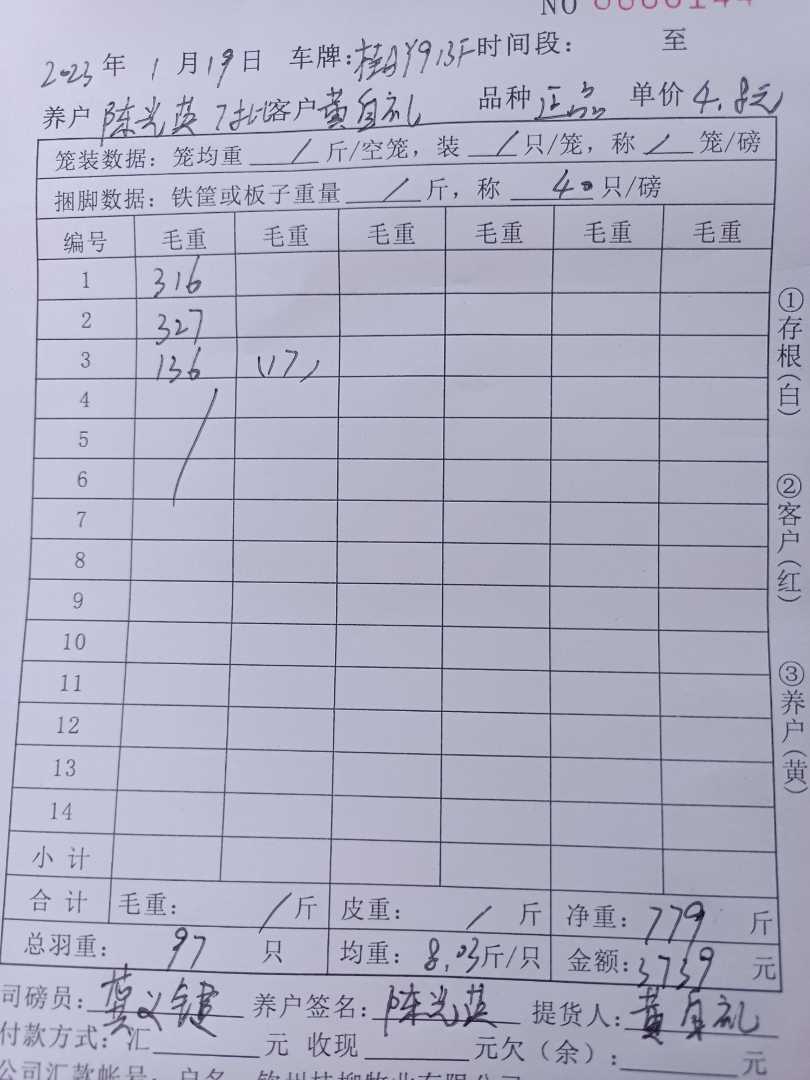 NO 0000144
2023年 1月19日 车牌:桂AY913F时间段: 至
养户 陈光英 7批客户黄自礼 品种 正品 单价 4.8元
笼装数据: 笼均重 / 斤/空笼, 装 / 只/笼, 称 / 笼/磅
捆脚数据: 铁筐或板子重量 / 斤, 称 40 只/磅
编号 毛重 毛重 毛重 毛重 毛重 毛重
1 316
2 327
3 136 (17)
4
5
6
7
8
9
10
11
12
13
14
小 计
合 计 毛重: / 斤 皮重: / 斤 净重: 779 斤
总羽重: 97 只 均重: 8.03斤/只 金额:3739 元
司磅员: 黄义健 养户签名: 陈光英 提货人: 黄自礼
付款方式: 汇 元 收现 元欠(余): 元
公司汇款帐号: 户名
①存根(白)
②客户(红)
③养户(黄)